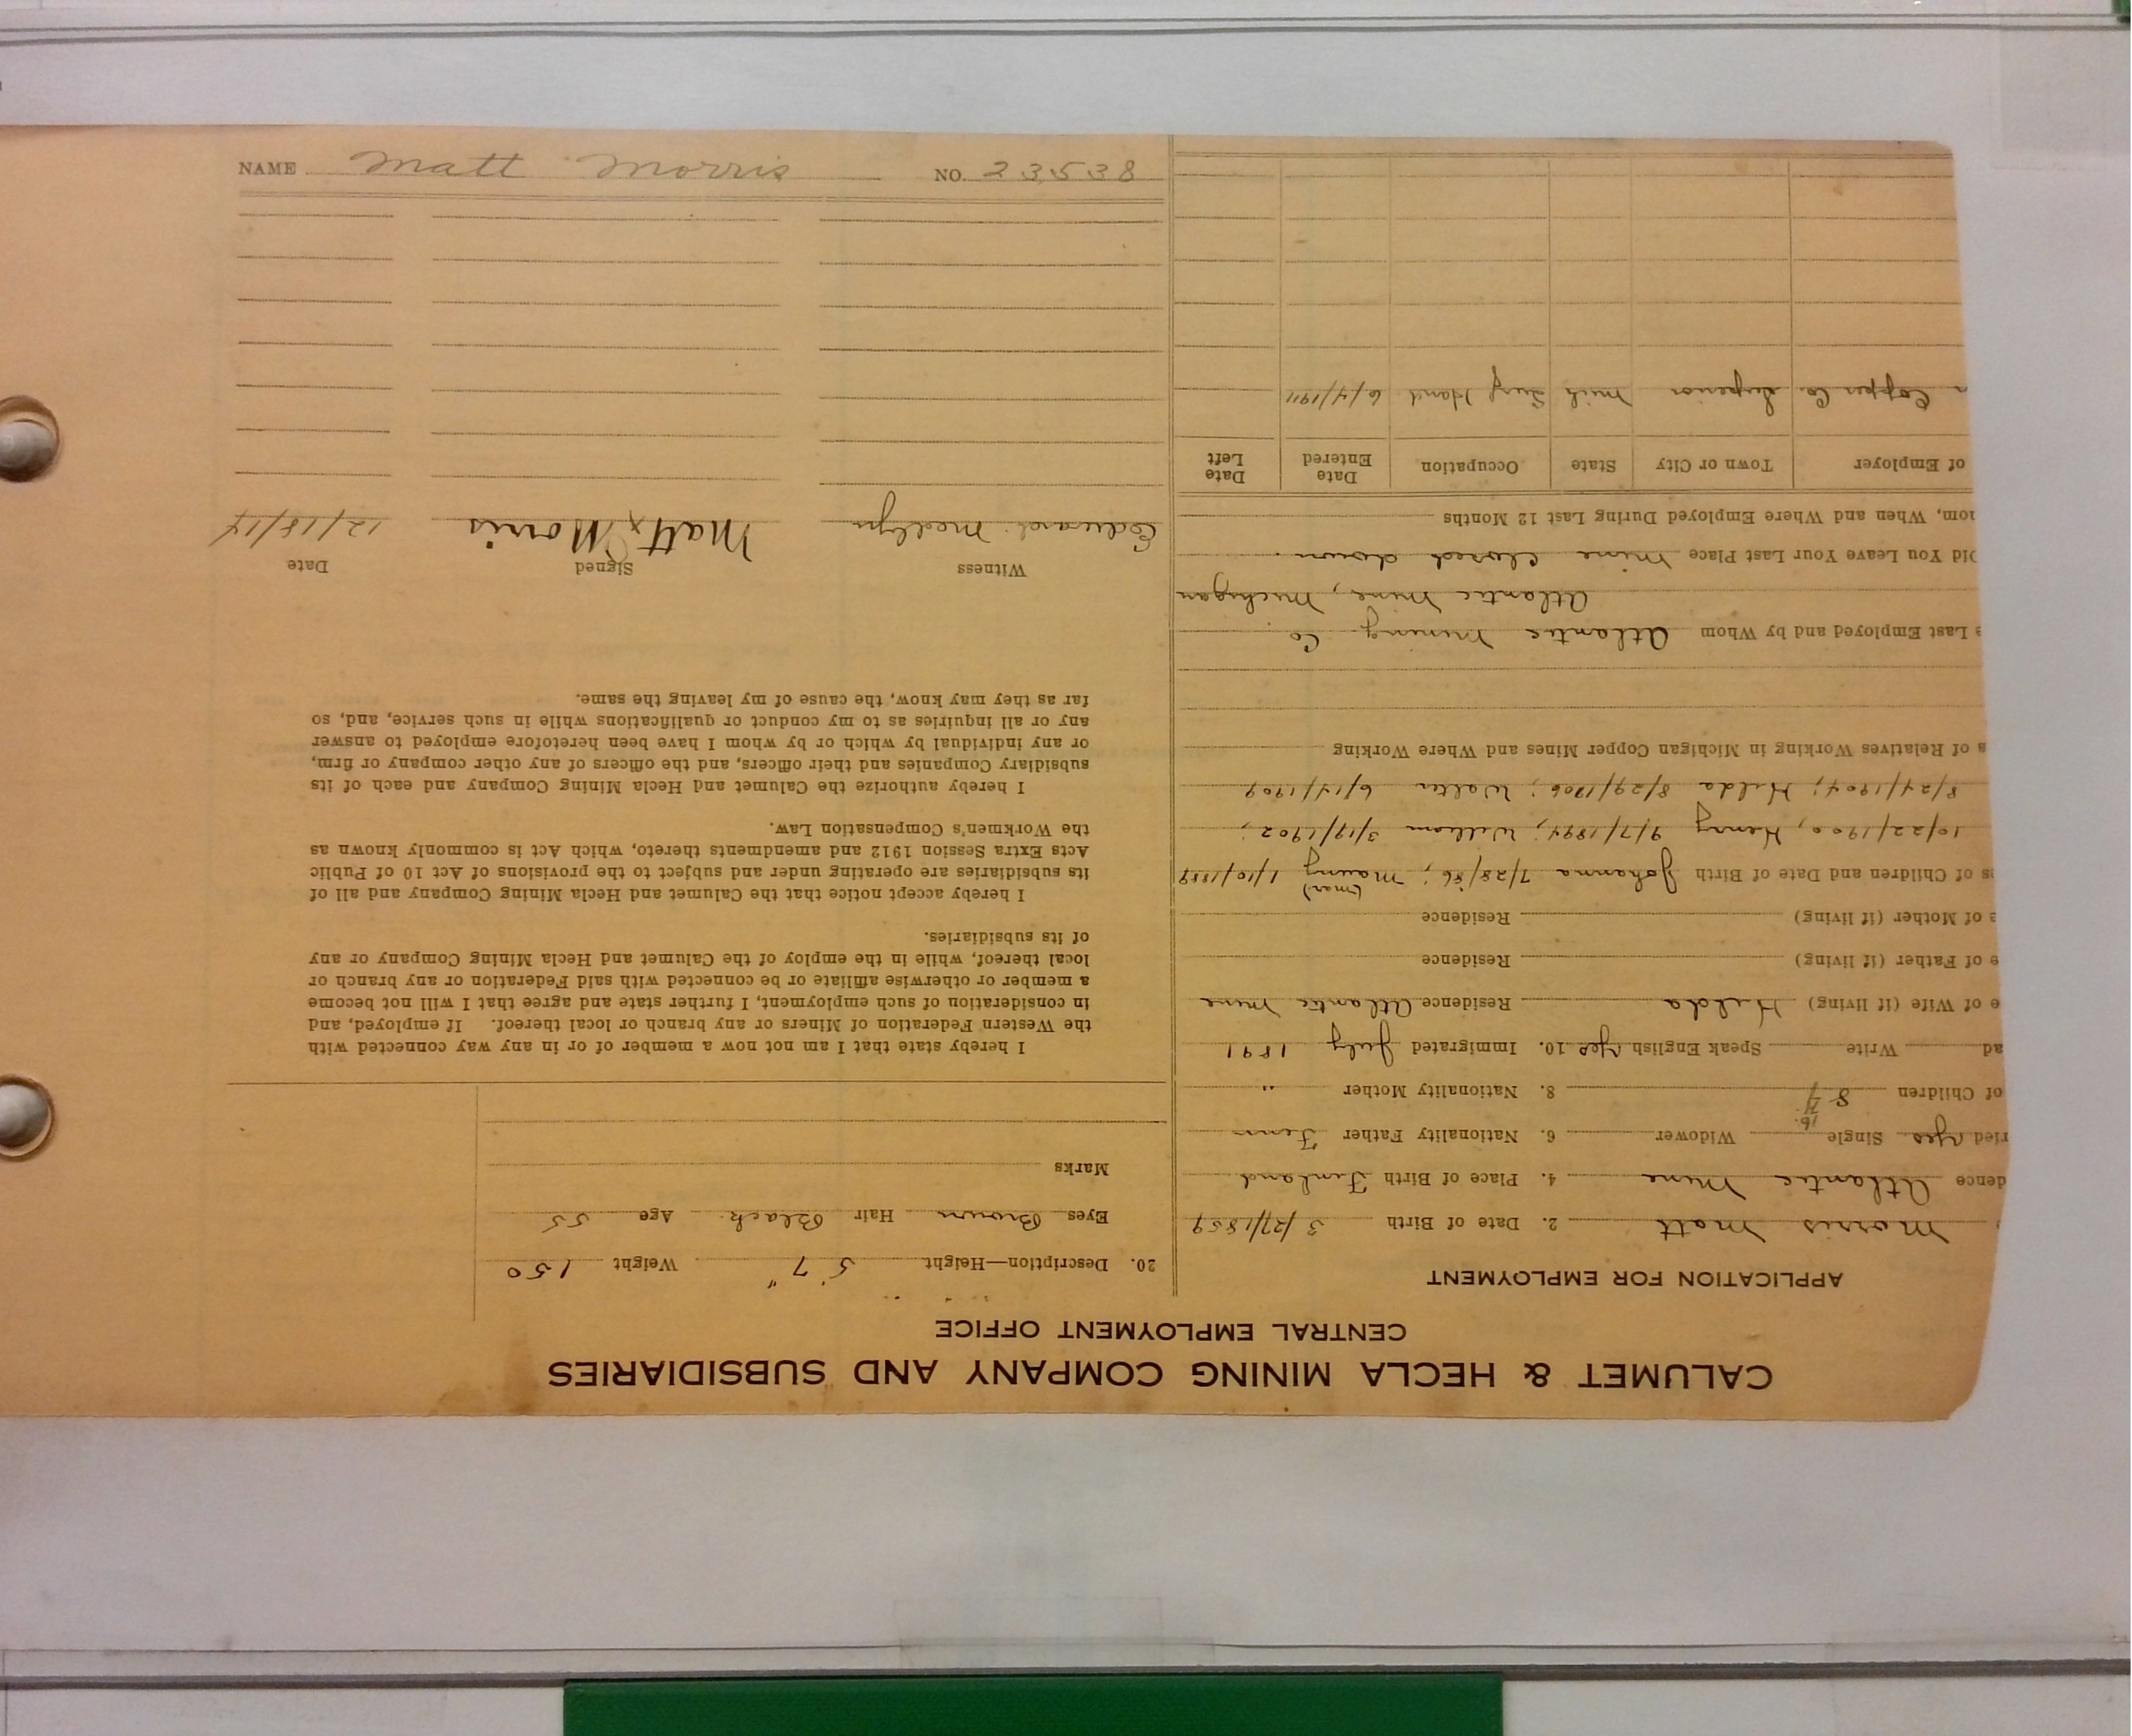 CALUMET & HECLA MINING COMPANY AND SUBSIDIARIES
CENTRAL EMPLOYMENT OFFICE
APPLICATION FOR EMPLOYMENT
Morris Matt 2. Date of Birth 3/27/1859
dence Atlantic Mine 4. Place of Birth Finland
ried Yes Single Widower 6. Nationality Father Finn
of Children 8 8. Nationality Mother "
ad Write Speak English Yes 10. Immigrated July 1891
e of Wife (if living) Hilda Residence Atlantic Mine
e of Father (if living) Residence
e of Mother (if living) Residence
s of Children and Date of Birth Johanna 7/28/86; (mar) 1/10/1889
10/22/1900, Henry 9/7/1894; William 3/19/1902;
8/24/1904; Hilda 8/29/1906; Walter 6/14/1909
s of Relatives Working in Michigan Copper Mines and Where Working
e Last Employed and by Whom Atlantic Mining Co.
Atlantic Mine, Michigan
Did You Leave Your Last Place Mine closed down.
nom, When and Where Employed During Last 12 Months
of Employer Town or City State Occupation Date Entered Date Left
r Copper Co. Superior Mich Surf Hand 6/4/1911
20. Description—Height 5' 7" Weight 150
Eyes Brown Hair Black Age 55
Marks
I hereby state that I am not now a member of or in any way connected with
the Western Federation of Miners or any branch or local thereof. If employed, and
in consideration of such employment, I further state and agree that I will not become
a member or otherwise affiliate or be connected with said Federation or any branch or
local thereof, while in the employ of the Calumet and Hecla Mining Company or any
of its subsidiaries.
I hereby accept notice that the Calumet and Hecla Mining Company and all of
its subsidiaries are operating under and subject to the provisions of Act 10 of Public
Acts Extra Session 1912 and amendments thereto, which Act is commonly known as
the Workmen's Compensation Law.
I hereby authorize the Calumet and Hecla Mining Company and each of its
subsidiary Companies and their officers, and the officers of any other company or firm,
or any individual by which or by whom I have been heretofore employed to answer
any or all inquiries as to my conduct or qualifications while in such service, and, so
far as they may know, the cause of my leaving the same.
Witness Signed Date
Edward Medlyn Matt x Morris 12/18/14
NAME Matt Morris NO. 23538